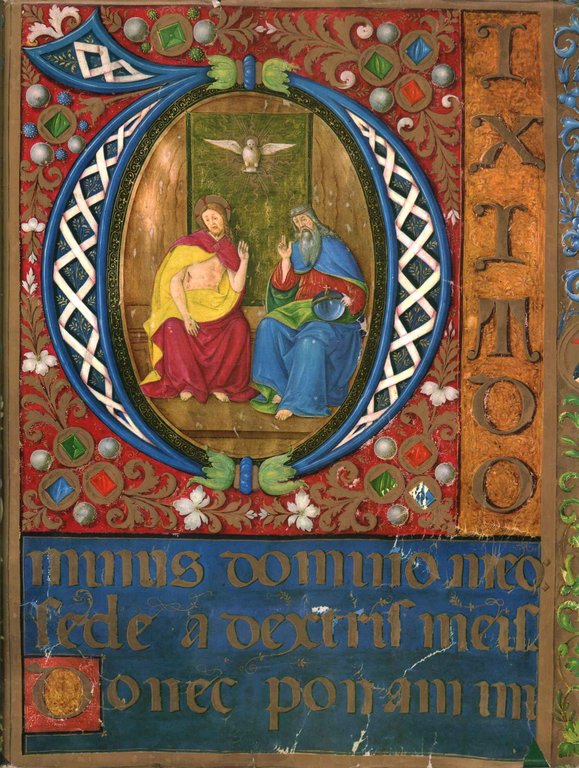 DIXIT DO
minus domino meo
sede a dextris meis
Donec ponam in